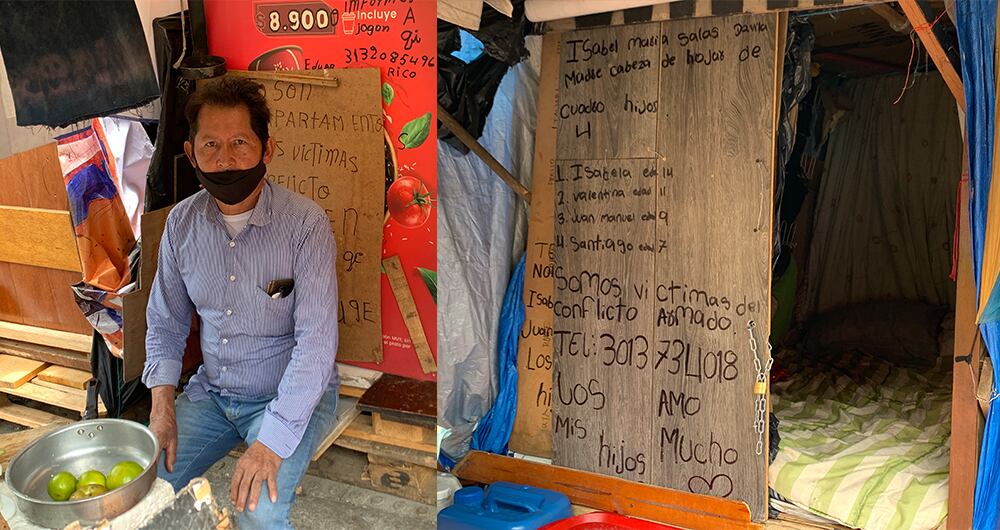 $8.900
Incluye
jogon
A
qi
3132085496
Rico
SON
PARTAMENTO
S VICTIMAS
FLICTO
EN
qe
Isabel maria Salas Davila
Madre cabeza de hojar de
cuatro hijos
4
1. Isabela edad 14
2. valentina edad 11
3. Juan manuel edad 9
4. Santiago edad 7
Somos victimas del
conflicto Armado
TEL: 3013734018
LOS AMO
Mis hijos Mucho
TE
Isab
Juan
Los
hi